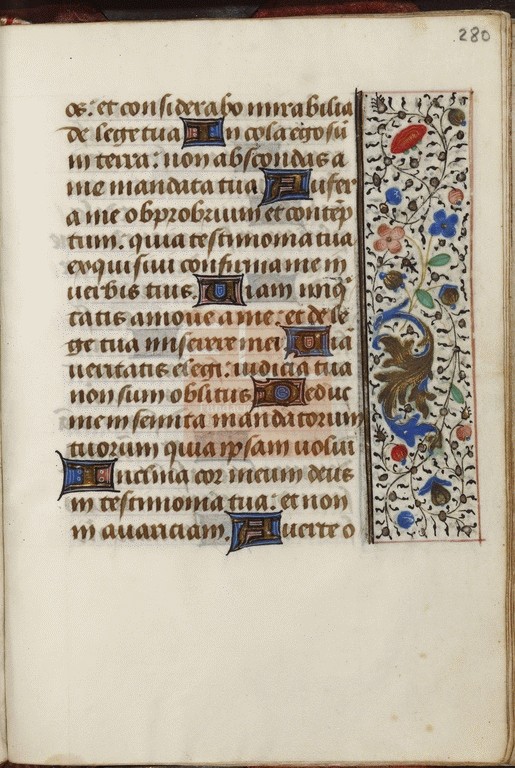 280
os: et considerabo mirabilia
de lege tua In cola ego sū
in terra: non abscondas a
me mandata tua Aufer
a me obprobrium et contēp
tum. quia testimonia tua
exquisiui confirma me in
uerbis tuis Uiam iniq̄
tatis amoue a me: et de le
ge tua miserere mei Uia
ueritatis elegi: iudicia tua
non sum oblitus Deduc
me in semita mandatorum
tuorum quia ipsam uolui
Inclina cor meum deus
in testimonia tua: et non
in auariciam. Auerte o